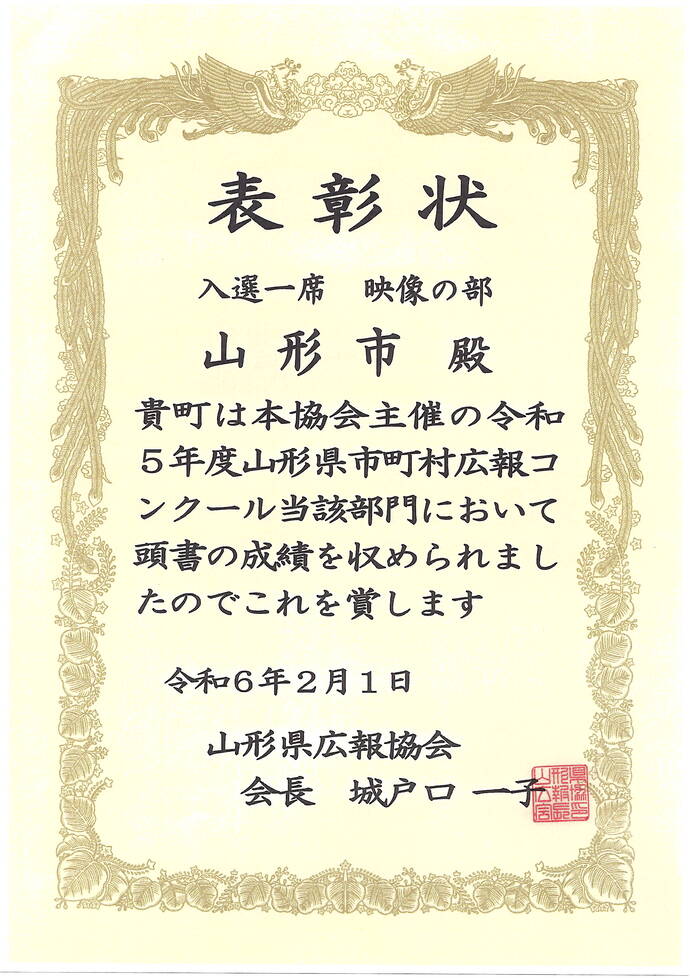 表彰状
入選一席 映像の部
山形市 殿
貴町は本協会主催の令和
5年度山形県市町村広報コ
ンクール当該部門において
頭書の成績を収められまし
たのでこれを賞します
令和6年2月1日
山形県広報協会
会長 城戸口 一子